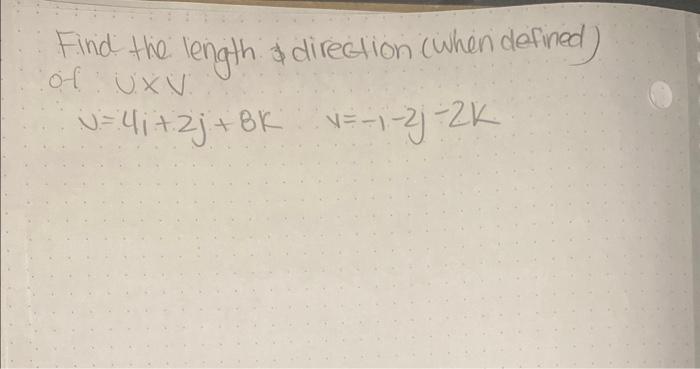 Find the length & direction (when defined)
of U×V
U=4i+2j+8K V=-i-2j-2K